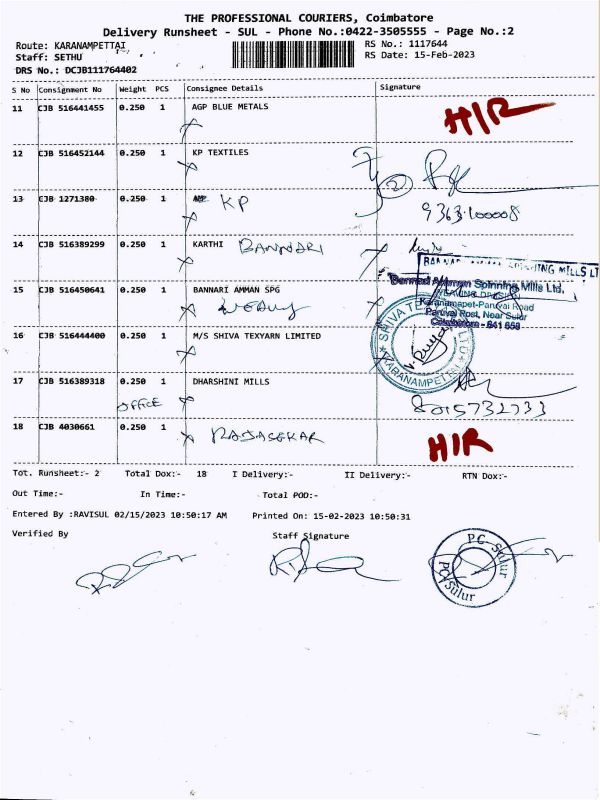 THE PROFESSIONAL COURIERS, Coimbatore
Delivery Runsheet - SUL - Phone No.:0422-3505555 - Page No.:2
Route: KARANAMPETTAI
RS No.: 1117644
Staff: SETHU
RS Date: 15-Feb-2023
DRS No.: DCJB111764402
S No Consignment No Weight PCS Consignee Details Signature
11 CJB 516441455 0.250 1 AGP BLUE METALS HIR
12 CJB 516452144 0.250 1 KP TEXTILES
13 CJB 1271380 0.250 1 KP
9363100008
14 CJB 516389299 0.250 1 KARTHI BANNARI
SPINNING MILLS LT
Bannari Amman Spinning Mills Ltd.,
15 CJB 516450641 0.250 1 BANNARI AMMAN SPG
WEAVING DIVISION
Karanampet-Paruvai Road
Paruvai Post, Near Sulur
Coimbatore - 641 658
16 CJB 516444400 0.250 1 M/S SHIVA TEXYARN LIMITED
SHIVA TEXYARN LTD
KARANAMPETTAI
17 CJB 516389318 0.250 1 DHARSHINI MILLS
OFFICE
8015732733
18 CJB 4030661 0.250 1 RAJASEKAR HIR
Tot. Runsheet:- 2 Total Dox:- 18 I Delivery:- II Delivery:- RTN Dox:-
Out Time:- In Time:- Total POD:-
Entered By :RAVISUL 02/15/2023 10:50:17 AM Printed On: 15-02-2023 10:50:31
Verified By Staff Signature
PC-Sulur
PC-Sulur